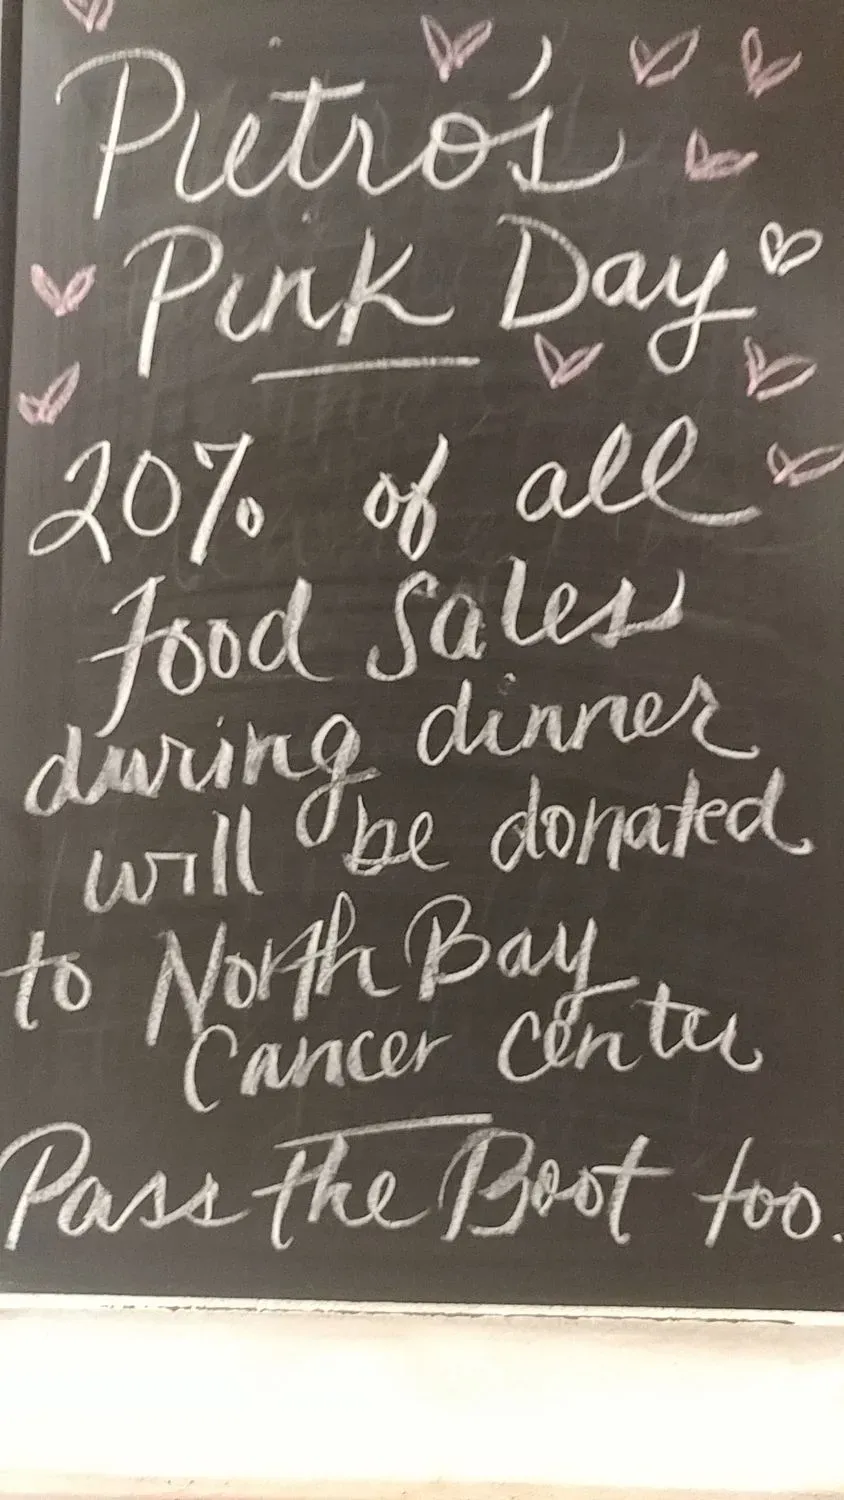 Pietro's
Pink Day
20% of all
food sales
during dinner
will be donated
to North Bay
Cancer center
Pass the Boot too.